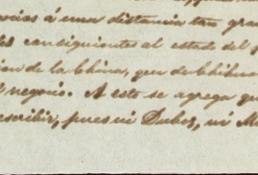 á una distancia tan gra
consiguientes al estado del p
de la China, que de Chihua
negocio. A esto se agrega qu
escribir, pues ni Dubos, ni M